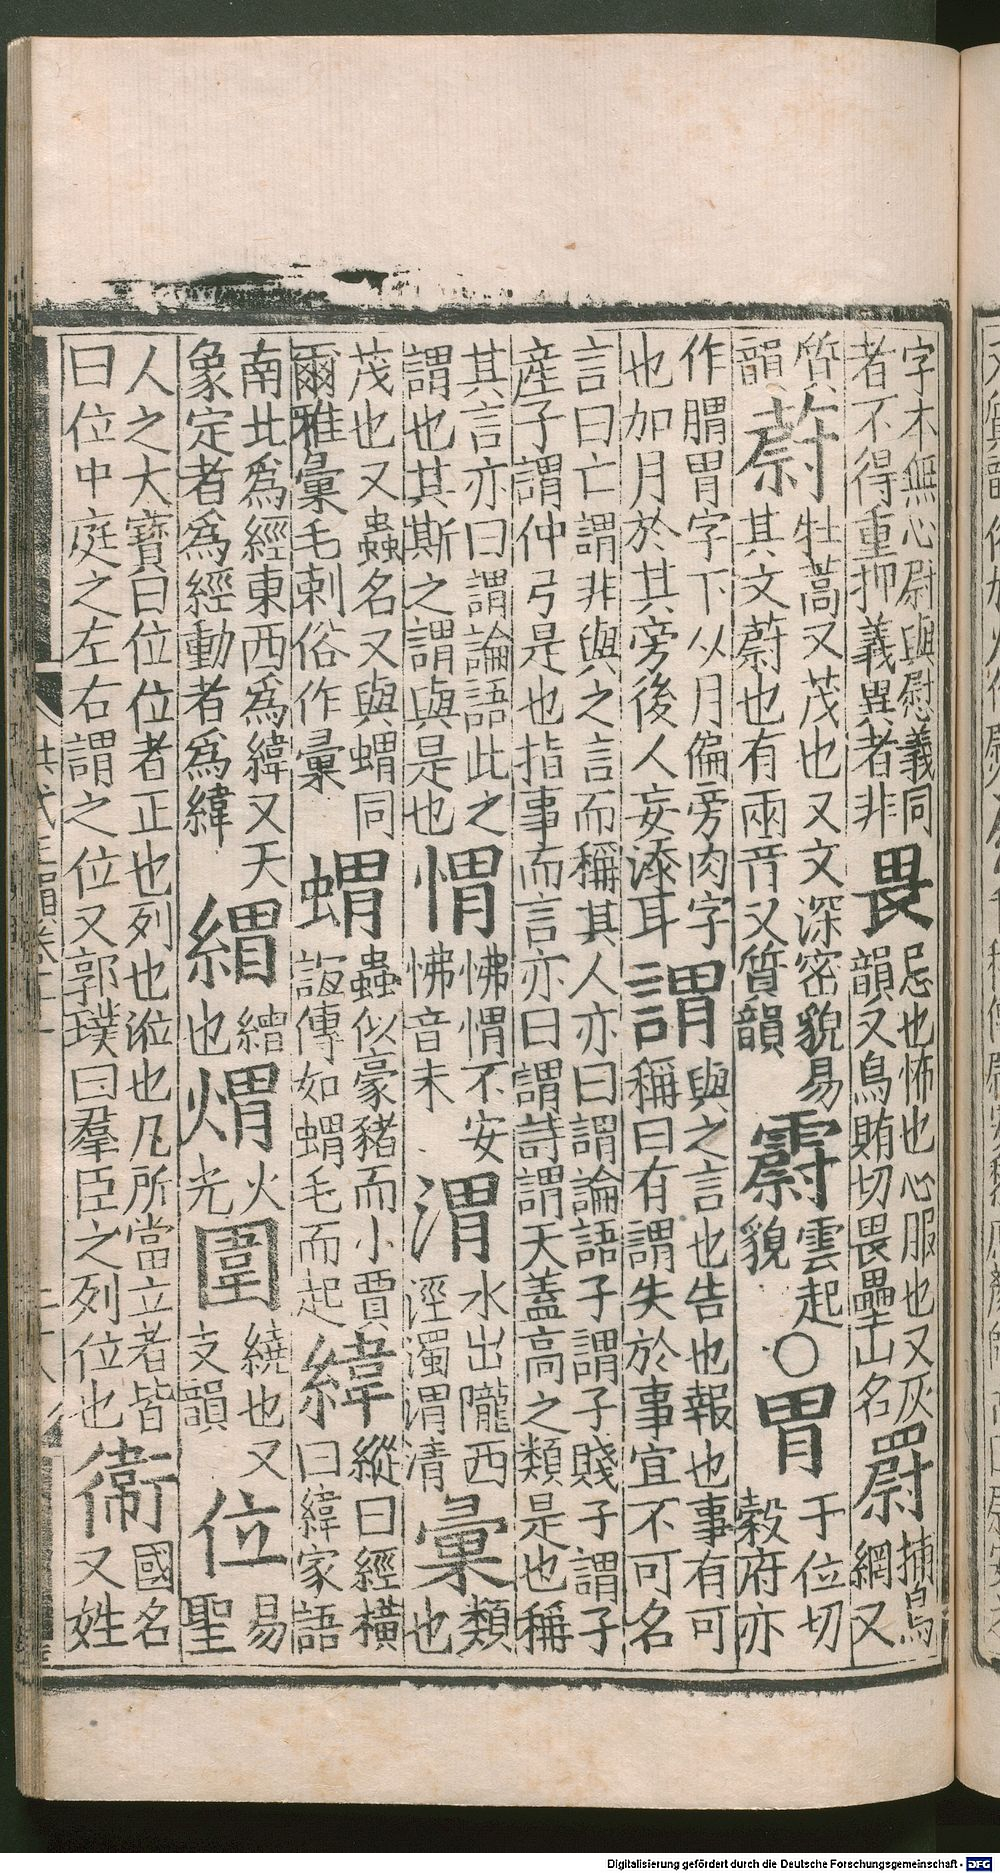 字木無心尉與慰義同者不得重押義異者非畏忌也怖也心服也又灰韻又鳥賄切畏壘山名罻捕鳥網又
質韻蔚牡蒿又茂也又文深密貌易其文蔚也有兩音又質韻霨雲起貌○胃于位切穀府亦
作䐴胃字下从月偏旁肉字也加月於其旁後人妄添耳謂與之言也告也報也事有可稱曰有謂失於事宜不可名
言曰亡謂非與之言而稱其人亦曰謂論語子謂子賤子謂子産子謂仲弓是也指事而言亦曰謂詩謂天蓋高之類是也稱
其言亦曰謂論語此之謂也其斯之謂與是也㥜怫㥜不安怫音未渭水出隴西涇濁渭清彙類也
茂也又蟲名又與蝟同爾雅彙毛刺俗作彚蝟蟲似豪豬而小賈誼傳如蝟毛而起緯縱曰經橫曰緯家語
南北爲經東西爲緯又天象定者爲經動者爲緯緭繒也煟火光圍繞也又支韻位易聖
人之大寶曰位位者正也列也涖也凡所當立者皆曰位中庭之左右謂之位又郭璞曰羣臣之列位也衞國名又姓
Digitalisierung gefördert durch die Deutsche Forschungsgemeinschaft - DFG